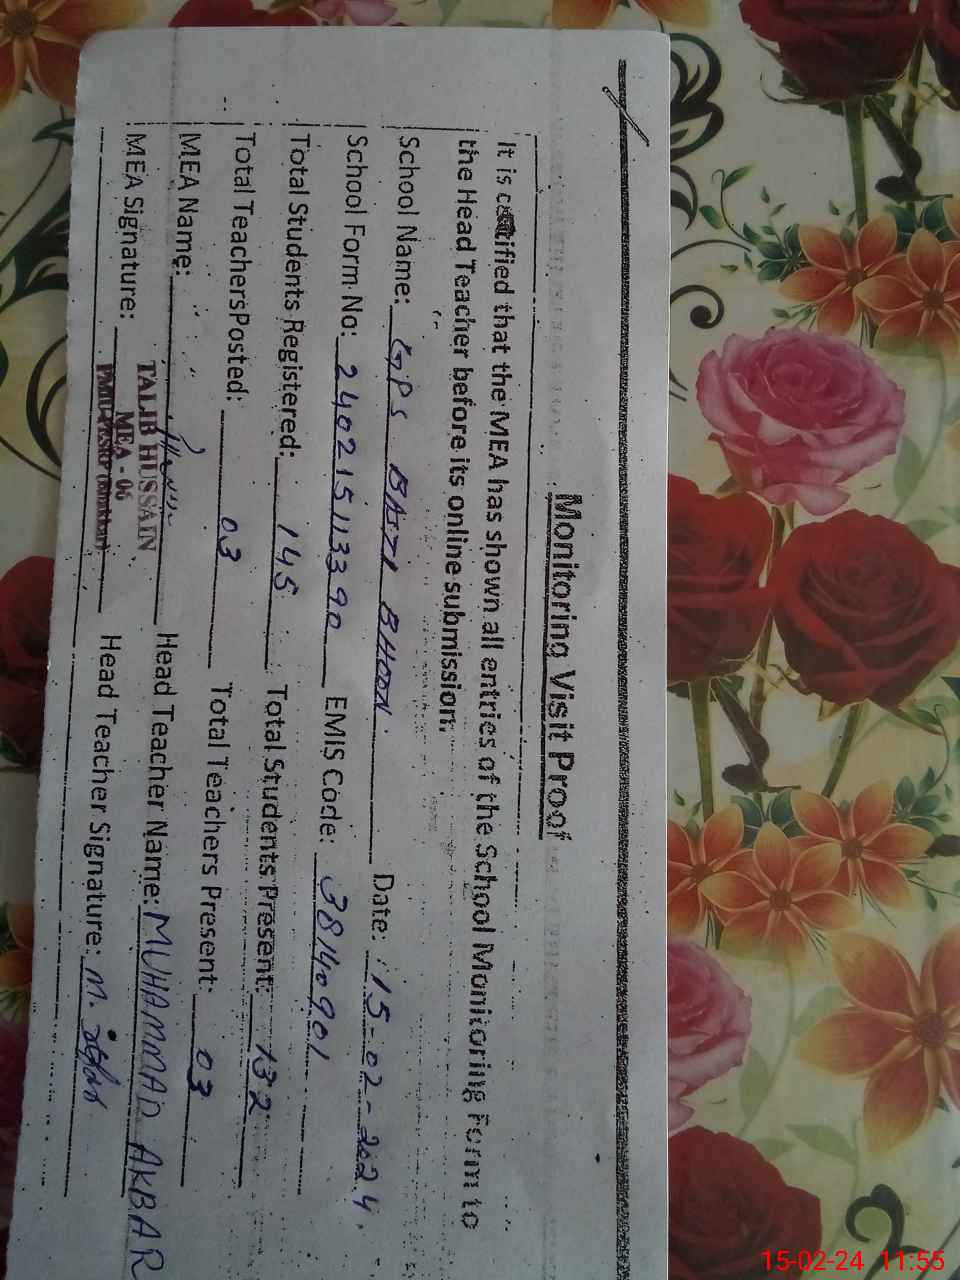 Monitoring Visit Proof
It is certified that the MEA has shown all entries of the School Monitoring Form to
the Head Teacher before its online submission.
School Name: GPS BASTI BHOON Date: 15-02-2024.
School Form No: 240215113390 EMIS Code: 38140901
Total Students Registered: 145 Total Students Present: 132
Total Teachers Posted: 03 Total Teachers Present: 03
MEA Name: Head Teacher Name: MUHAMMAD AKBAR
MEA Signature: Head Teacher Signature: M.
TALIB HUSSAIN
MEA - 06
15-02-24 11:55